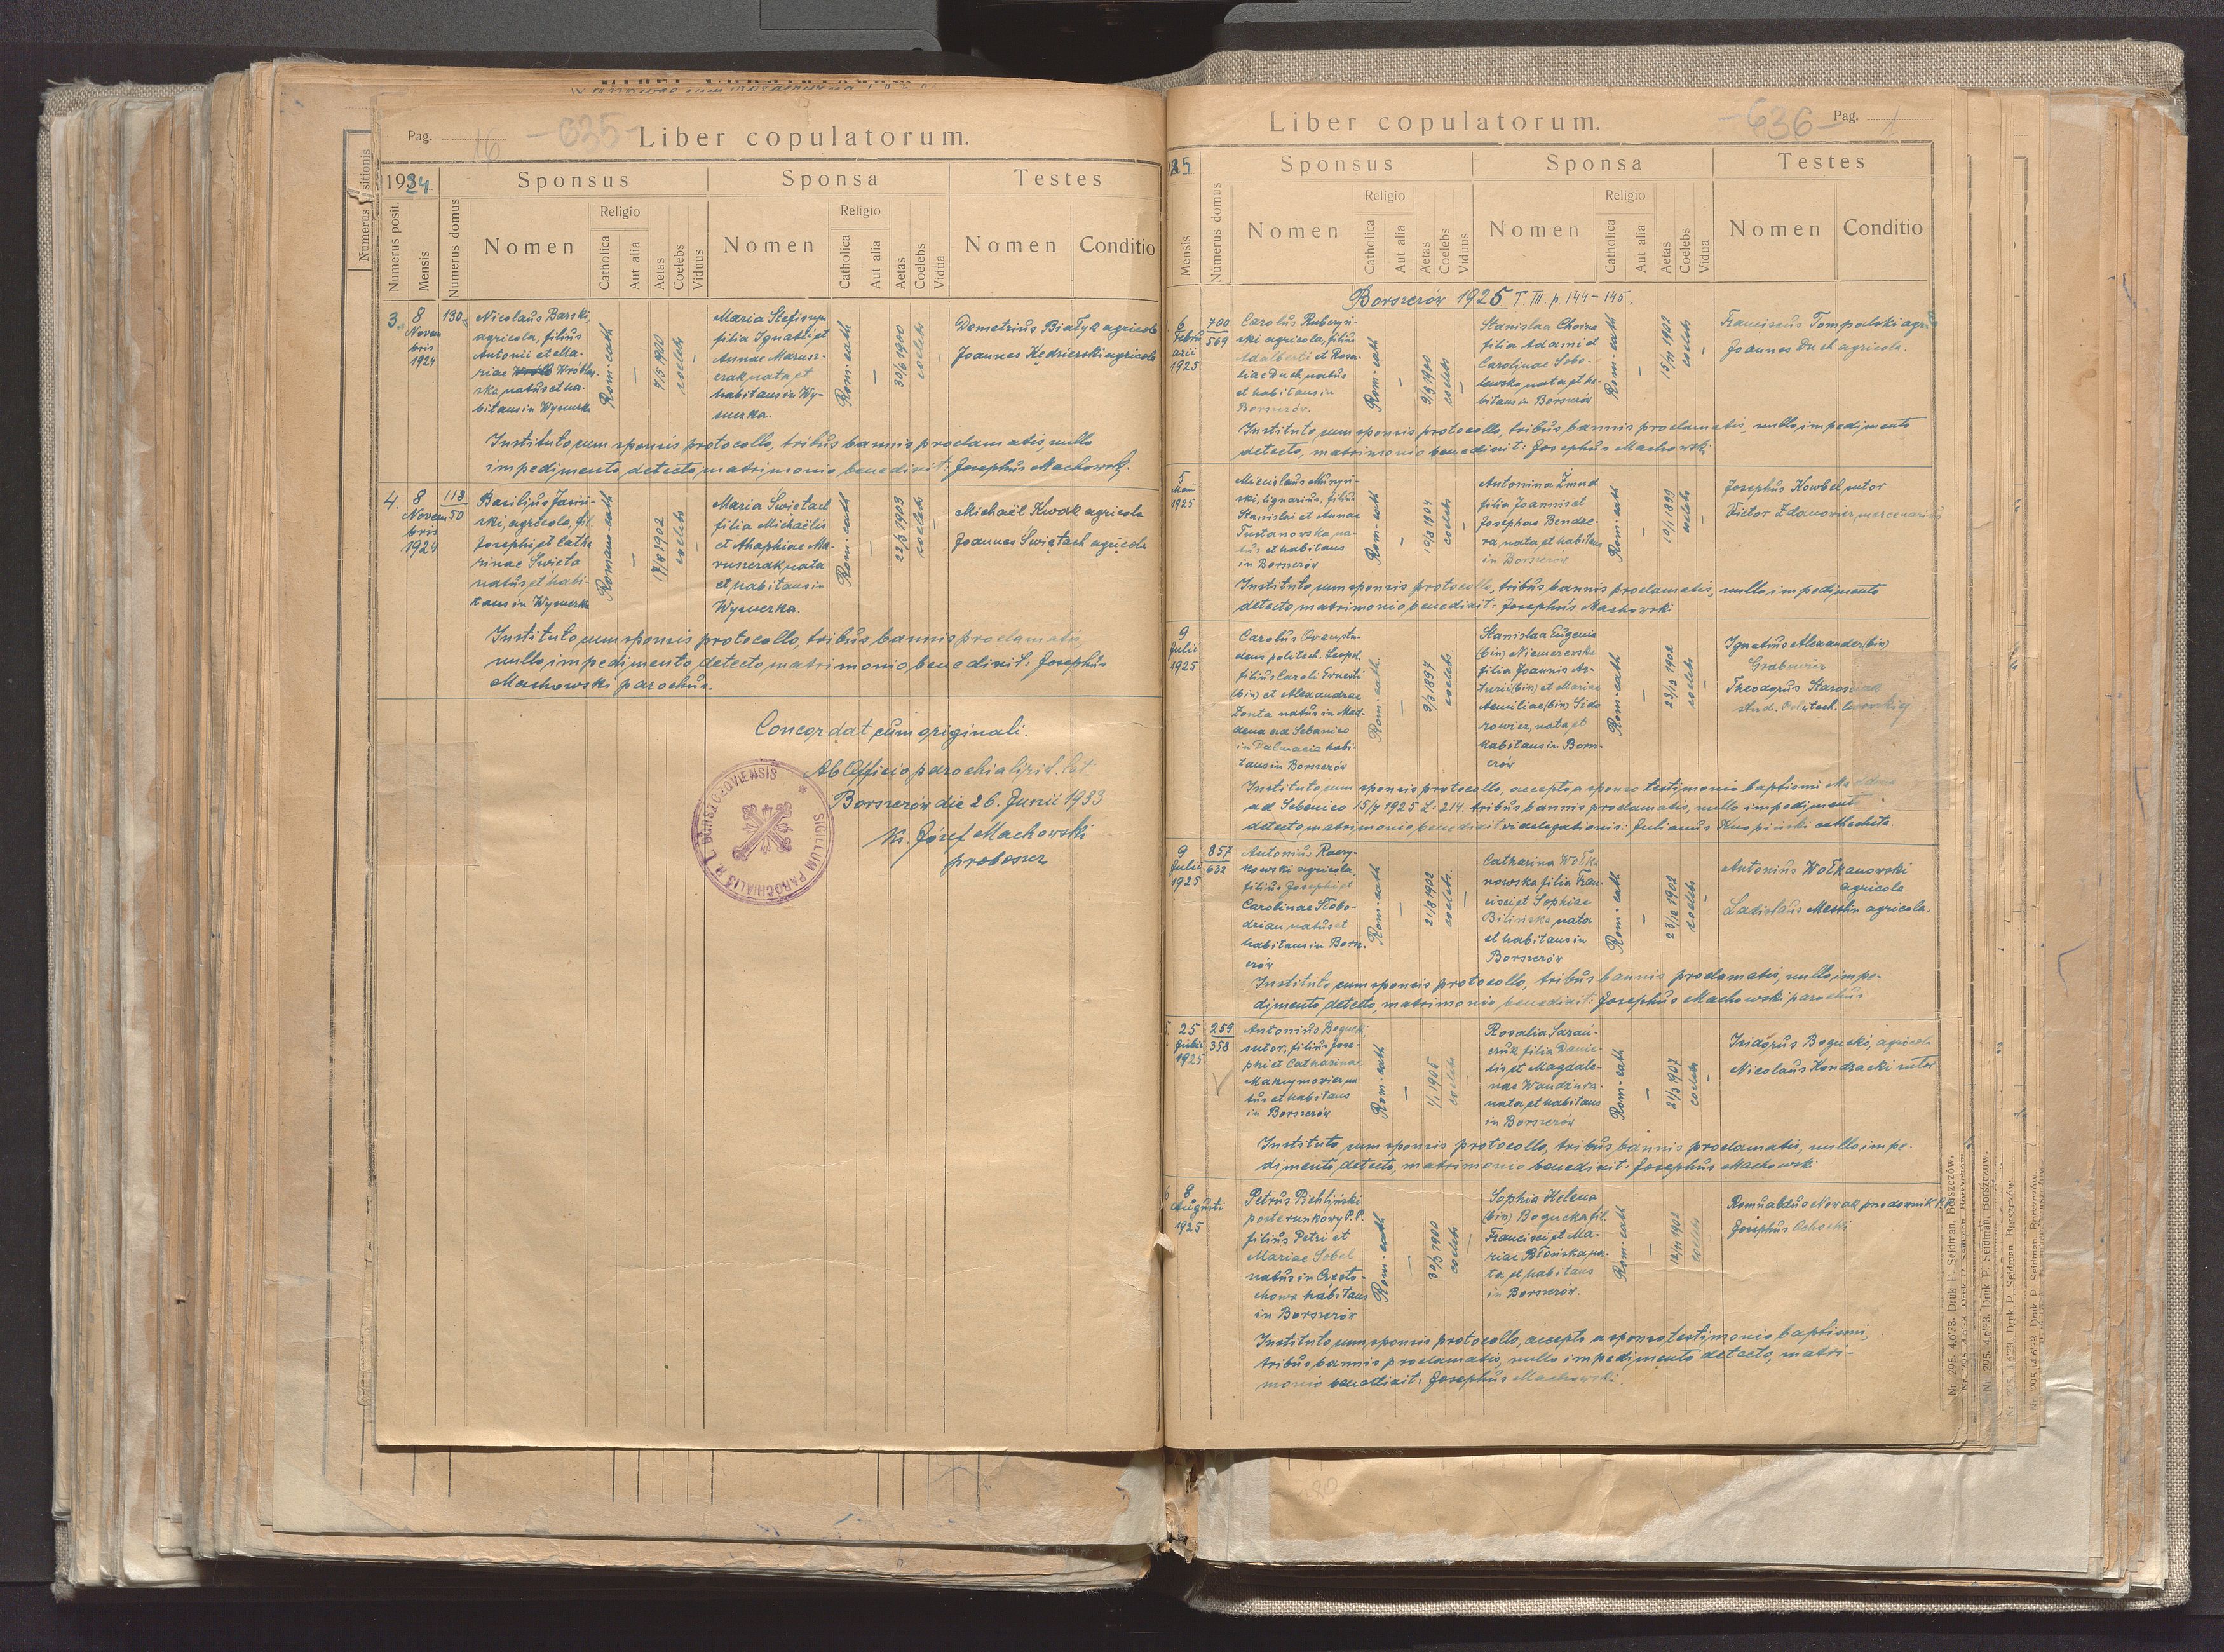 Pag. 16 -635-
Liber copulatorum.
1924
Sponsus
Sponsa
Testes
Numerus posit.
Mensis
Numerus domus
Nomen
Religio
Catholica
Aut alia
Aetas
Coelebs
Viduus
Nomen
Religio
Catholica
Aut alia
Aetas
Coelebs
Vidua
Nomen
Conditio
3.
8
Novem
bris
1924
130
Nicolaus Barski
agricola, filius
Antonii et Ma-
riae Wróblew-
ska natus et ha-
bitans in Wysuczka
Rom-cath
—
7/5 1900
coelebs
—
Maria Stefiszyn
filia Ignatii et
Annae Marusz-
czak nata et
habitans in Wy-
suczka.
Rom-cath
—
30/6 1900
coelebs
—
Demetrius Białyk agricola
Joannes Kedzierski agricola
Instituto cum sponsis protocollo, tribus bannis proclamatis, nullo
impedimento detecto matrimonio benedixit: Josephus Machowski.
4.
8
Novem
bris
1924
113
50
Basilius Jasiń-
ski, agricola, fil.
Josephi et Catha
rinae Święta
natus et habi-
tans in Wysuczka
Romano-cath
—
17/8 1902
coelebs
—
Maria Świętach
filia Michaëlis
et Ahaphiae Ma-
ruszczak nata
et habitans in
Wysuczka.
Rom-cath
—
22/3 1903
coelebs
—
Michaël Kwak agricola
Joannes Świętach agricola
Instituto cum sponsis protocollo, tribus bannis proclamatis,
nullo impedimento detecto matrimonio benedixit: Josephus
Machowski parochus.
Concordat cum originali.
Ab Officio parochiali rit. lat.
Borszczów die 26. Junii 1933
Ks. Józef Machowski
proboszcz
SIGILLUM PAROCHIALIS R. L. BORSZCZOVIENSIS
Liber copulatorum.
-636- Pag. 1
25
Sponsus
Sponsa
Testes
Mensis
Numerus domus
Nomen
Religio
Catholica
Aut alia
Aetas
Coelebs
Viduus
Nomen
Religio
Catholica
Aut alia
Aetas
Coelebs
Vidua
Nomen
Conditio
Borszczów 1925 T. III. p. 144-145.
6
Febru
arii
1925
700
569
Carolus Ruczyń-
ski agricola, filius
Adalberti et Rosa-
liae Duch natus
et habitans in
Borszczów.
Rom-cath
—
9/9 1900
coelebs
—
Stanislaa Choina
filia Adami et
Carolinae Sobo-
lewska nata et ha-
bitans in Borszczów
Rom-cath
—
15/11 1902
coelebs
—
Franciscus Tompalski agricola
Joannes Duch agricola.
Instituto cum sponsis protocollo, tribus bannis proclamatis, nullo impedimento
detecto, matrimonio benedixit: Josephus Machowski
5
Maii
1925
Miecislaus Muszyń-
ski, lignarius, filius
Stanislai et Annae
Tustanowska na-
tus et habitans
in Borszczów
Rom-cath
—
10/8 1904
coelebs
—
Antonina Żmud
filia Joannis et
Josephae Bende-
ra nata et habitans
in Borszczów
Rom-cath
—
10/1 1899
coelebs
—
Josephus Kowbel sutor
Victor Zdanowicz mercenarius
Instituto cum sponsis protocollo, tribus bannis proclamatis, nullo impedimento
detecto matrimonio benedixit: Josephus Machowski
9
Julii
1925
Carolus stu-
dens politech. Leopol.
filius Caroli Ernesti
(bin) et Alexandrae
Zonta natus in Mad-
dena ad Sebenico
in Dalmacia habi-
tans in Borszczów
Rom-cath.
—
9/3 1897
coelebs.
—
Stanislaa Eugenia
(bin) Niemczewska
filia Joannis Ar-
turii (bin) et Mariae
Aemiliae (bin) Sido
rowicz, nata et
habitans in Borsz-
czów
Rom-cath
—
23/12 1902
coelebs
—
Ignatius Alexander (bin)
Grabowicz
Theodorus
stud. Politech. lwowskiej
Instituto cum sponsis protocollo, accepto a sponso testimonio baptismi
ad Sebenico 15/7 1925 L: 214. tribus bannis proclamatis, nullo impedimento
detecto, matrimonio benedixit vi delegationis: Julianus Knopiński catholicta.
9
Julii
1925
857
632
Antonius Raczy-
kowski agricola,
filius Josephi et
Carolinae Słobo-
dzian natus et
habitans in Borsz-
czów
Rom-cath
—
21/8 1902
coelebs.
—
Catharina Wołka
nowska filia Fran-
cisci et Sophiae
Bilińska nata
et habitans in
Borszczów
Rom-cath
—
23/12 1902
coelebs
—
Antonius Wołkanowski
agricola
Ladislaus agricola.
Instituto cum sponsis protocollo, tribus bannis proclamatis, nullo impe-
dimento detecto, matrimonio benedixit: Josephus Machowski parochus
5.
25
Julii
1925
259
358
Antonius Bogucki
sutor, filius Jose-
phi et Catharinae
Maksymowicz na
tus et habitans
in Borszczów
Rom-cath
—
1/1 1905
coelebs
Rosalia Sarań-
czuk filia Danie-
lis et Magdale-
nae Wandziura
nata et habitans
in Borszczów
Rom-cath
—
21/3 1907
coelebs
—
Isidorus Bogucki, agricola
Nicolaus Kondracki sutor
Instituto cum sponsis protocollo, tribus bannis proclamatis, nullo impe-
dimento detecto, matrimonio benedixit: Josephus Machowski
6
8
Augusti
1925
Petrus Pichliński
posterunkowy P.P.
filius Petri et
Mariae Sobel
natus in Często-
chowa habitans
in Borszczów
Rom-cath
—
30/3 1900
coelebs
—
Sophia Helena
(bin) Bogucka fil.
Francisci et Ma-
riae Błońska na-
ta et habitans
in Borszczów.
Rom-cath
—
12/11 1902
coelebs
Romualdus Nowak przodownik P.P.
Josephus Cichocki
Instituto cum sponsis protocollo, accepto a sponso testimonio baptismi,
tribus bannis proclamatis, nullo impedimento detecto, matri-
monio benedixit: Josephus Machowski.
Nr. 295. 4.6'33. Druk P. Seidman, Borszczów.